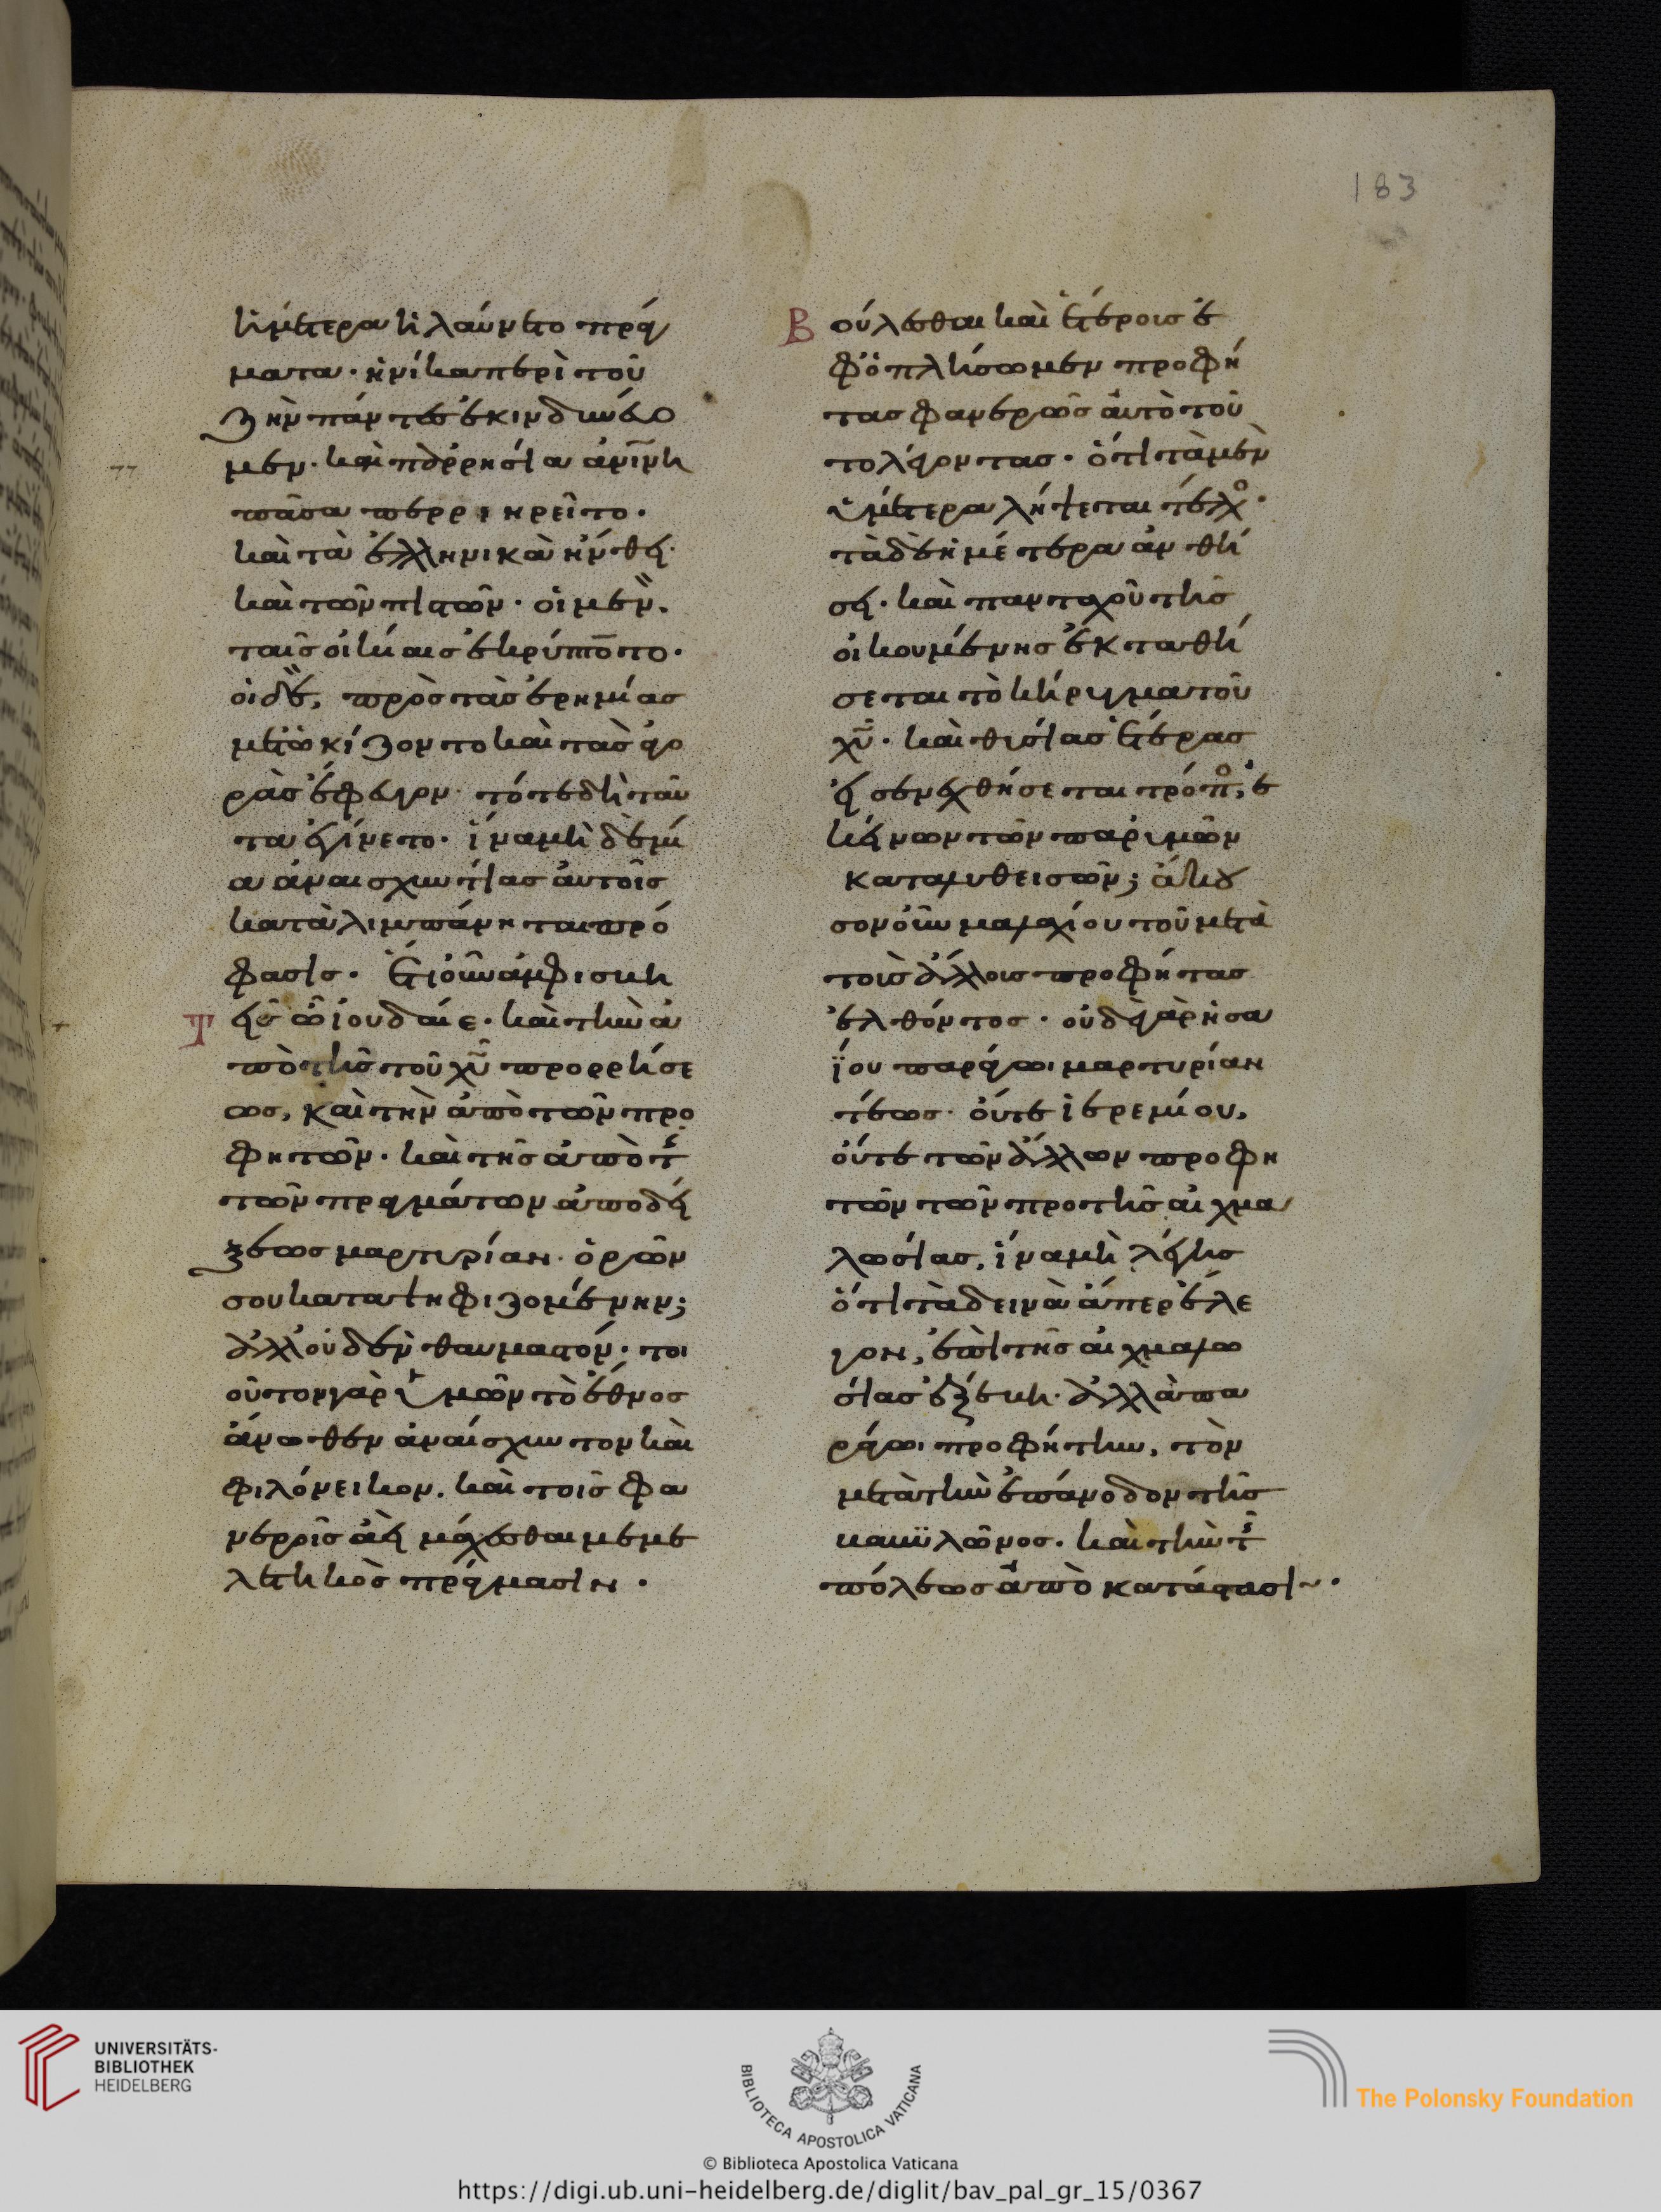 183
ἡμέτερα ἠλαύνετο πράγ
ματα· ἡνίκα περὶ τοῦ
ζῆν πάντες ἐκινδυνεύο
μεν· καὶ παρρησία
πᾶσα περρι ηρεῖτο·
καὶ τὰ ἑλληνικὰ ἤνθει·
καὶ τῶν πιστῶν· οἱ μὲν,
ταῖς οἰκίαις ἐκρύπτοντο·
οἱ δὲ, πρὸς τὰς ἐρημίας
μετωκίζοντο καὶ τὰς ἀγο
ρὰς ἔφευγον· τότε δὴ ταῦ
τα ἐγίνετο· ἵνα μὴ δεμί
α ἀναισχυντίας αὐτοῖς
καταλιμπάνηται πρό
φασις. Ἔτι οὖν ἀμφισβη
Τ εῖς ὦ ἰουδαίε· καὶ τὴν ἀ
πὸ τῆς τοῦ χ̅υ̅ προρρήσε
ως, καὶ τὴν ἀπὸ τῶν προ
φητῶν· καὶ τῆς ἀπὸ τ
τῶν πραγμάτων ἀποδεί
ξεως μαρτυρίαν· ὁρῶν
σου καταψηφιζομένην;
ἀλλ' οὐδὲν θαυμαστόν· τοι
οῦτον γὰρ ὑμῶν τὸ ἔθνος
ἄνωθεν ἀναίσχυντον καὶ
φιλόνεικον. καὶ τοῖς φα
νεροῖς ἀεὶ μάχεσθαι μεμε
λετηκὸς πράγμασιν·
Β ούλεσθαι καὶ ἑτέροις ἐ
φοπλήσωμεν προφή
τας φανερῶς αὐτὸ τοῦ
το λέγοντας· ὅτι τὰ μὲν
ὑμέτερα λήψεται τέλο·
τὰ δὲ ἡμέτερα ἀνθή
σει· καὶ πανταχοῦ τῆς
οἰκουμένης ἐκταθή
σεται τὸ κήρυγμα τοῦ
χ̅υ̅· καὶ θυσίας ἑτέρας
εἰσενεχθήσεται τρόπο, ἐ
κείνων τῶν παρ' ὑμῶν
καταλυθεισῶν; ἄκου
σον οὖν μαλαχίου τοῦ μετὰ
τοὶς ἄλλοις προφήτας
ἐλθόντος· οὐδὲ γὰρ ἡσα
ΐου παράγωι μαρτυρίαν
τέως· οὔτε ἱερεμίου,
οὔτε τῶν ἄλλων προφη
τῶν τῶν προ τῆς αἰχμα
λωσίας, ἵνα μὴ λέγης
ὅτι τὰ δεινὰ ἅπερ ἔλε
γον, ἐπὶ τῆς αἰχμαλω
σίας ἐξέβη· ἀλλὰ πα
ράγωι προφήτην, τὸν
μετὰ τὴν ἐπάνοδον τῆς
βαβϋλῶνος· καὶ τὴν τ
πόλεως ἀπὸ κατάστασιν·
UNIVERSITÄTS-
BIBLIOTHEK
HEIDELBERG
BIBLIOTECA APOSTOLICA VATICANA
The Polonsky Foundation
© Biblioteca Apostolica Vaticana
https://digi.ub.uni-heidelberg.de/diglit/bav_pal_gr_15/0367